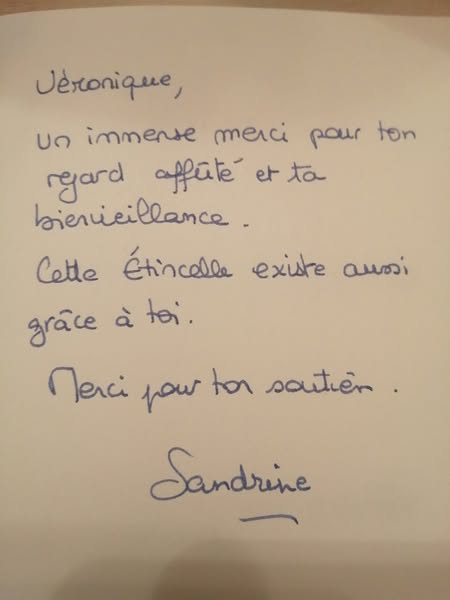 Véronique,
un immense merci pour ton
regard affûté et ta
bienveillance.
Cette Étincelle existe aussi
grâce à toi.
Merci pour ton soutien.
Sandrine